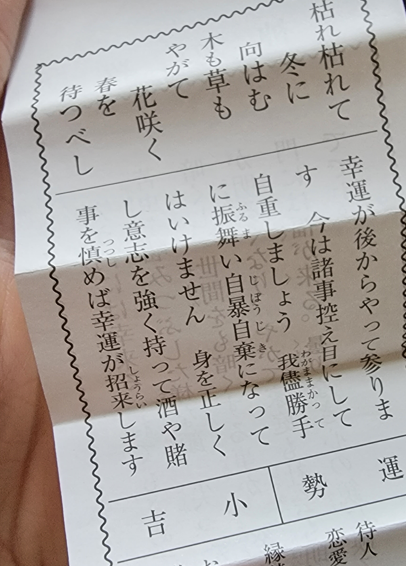 枯れ枯れて
冬に
向はむ
木も草も
やがて
花咲く
春を
待つべし
幸運が後からやって参りま
す　今は諸事控え目にして
自重しましょう　我儘勝手
に振舞い自暴自棄になって
はいけません　身を正しく
し意志を強く持って酒や賭
事を慎めば幸運が招来します
運勢
小吉
待人
恋愛